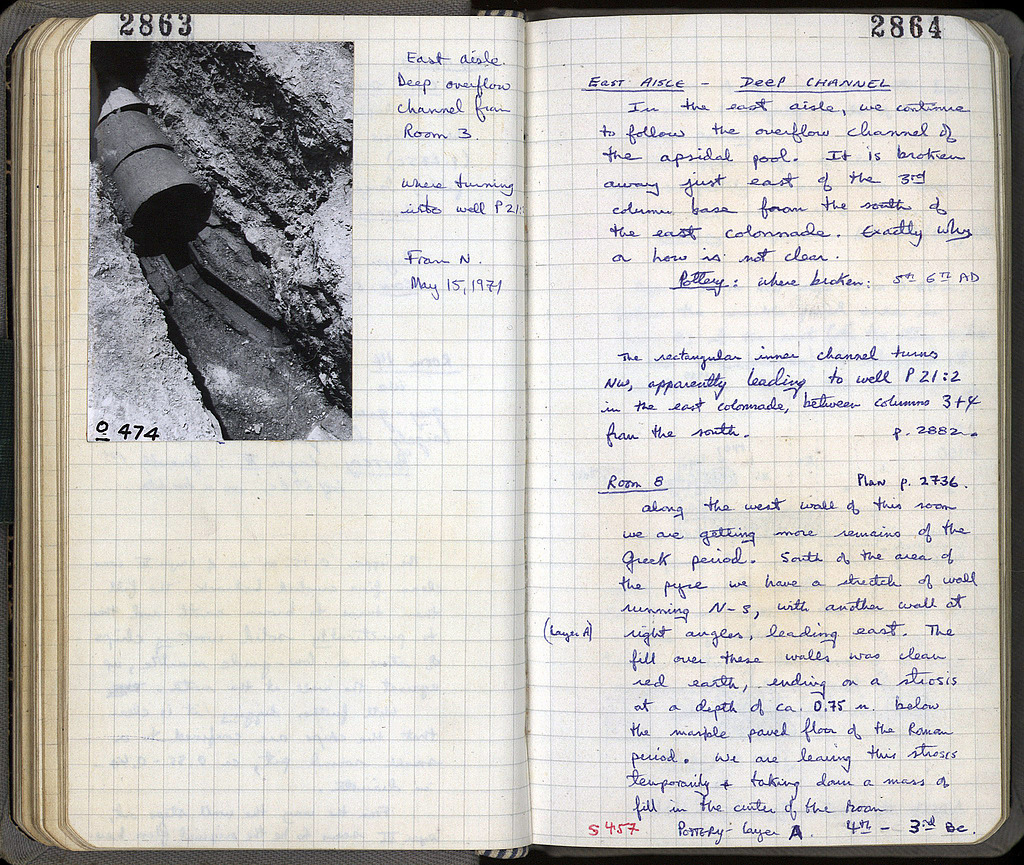 2863
East aisle.
Deep overflow
channel from
Room 3.
where turning
into well P 21:
From N.
May 15, 1971
O 474
2864
EAST AISLE - DEEP CHANNEL
In the east aisle, we continue
to follow the overflow channel of
the apsidal pool. It is broken
away just east of the 3rd
column base from the south of
the east colonnade. Exactly why
or how is not clear.
Pottery: where broken: 5th 6th AD
The rectangular inner channel turns
NW, apparently leading to well P 21:2
in the east colonnade, between columns 3+4
from the south. p. 2882.
Room 8 Plan p. 2736.
Along the west wall of this room
we are getting more remains of the
Greek period. South of the area of
the pyre we have a stretch of wall
running N-S, with another wall at
(Layer A) right angles, leading east. The
fill over these walls was clean
red earth, ending on a strosis
at a depth of ca. 0.75 m. below
the marble paved floor of the Roman
period. We are leaving this strosis
temporarily + taking down a mass of
fill in the center of the room
S 457 POTTERY - Layer A. 4th - 3rd BC.